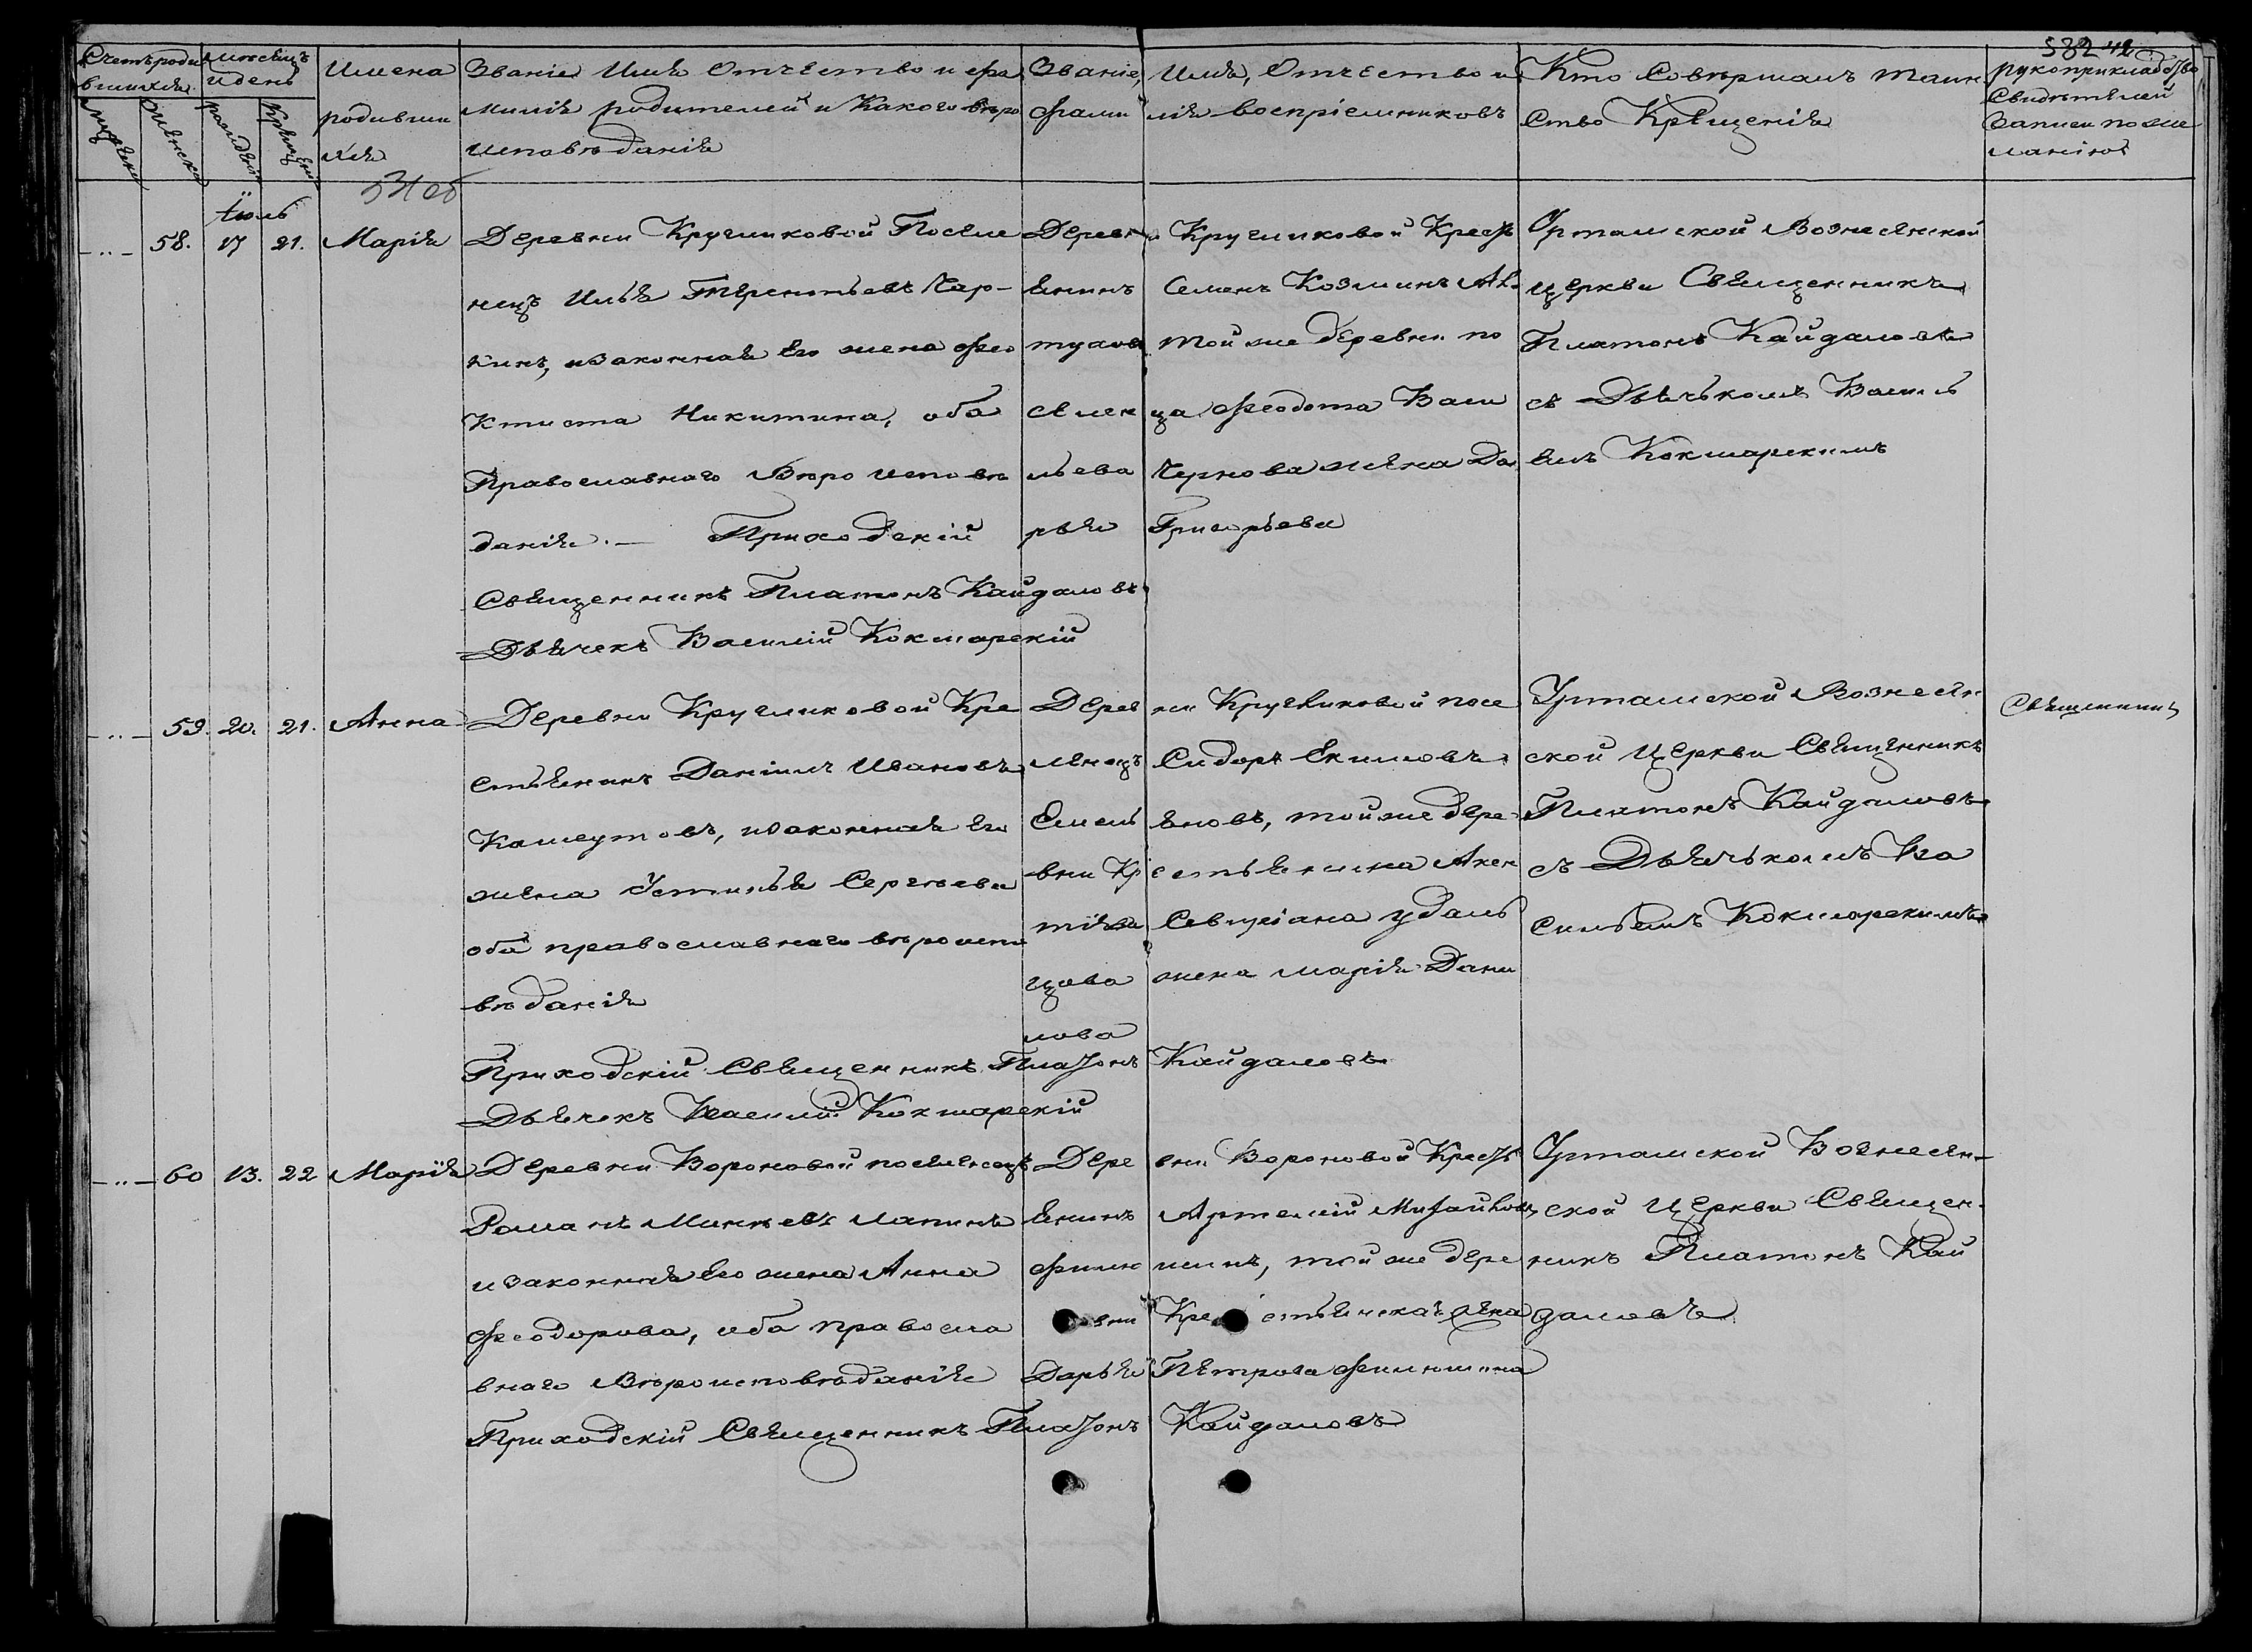 532 42
Счетъ роди
вшихся.
Мѣсяцъ
и день
Имена
родивши
хся
Званіе Имя Отчество и фа
милія родителей и Какого вѣро
исповѣданія
Званіе, Имя, Отчество и
фами лія воспріемниковъ
Кто Совершалъ таин
ство Крещенія
рукоприкладство
Свидѣтелей
записи по же
ланію
Мужеска
Женска
рожденія
крещенія
Іюль
58. 17 21. Марія
Деревни Кругликовой Поселе
нецъ Илья Терентьевъ Чар-
кинъ, и Законная Его жена Фео
ктиста Никитина, оба
Православнаго Вѣро исповѣ
данія. — Приходскій
Священникъ Платонъ Кайдаловъ
Дьячекъ Василій Кокшарскій
Деревни Кругликовой Крестъ
янинъ Семенъ Козминъ
тухов той же деревни по
селен ца Феодота Васи
льева Чернова жена Да
рья Григорьева
Уртамской Вознесенской
церкви Священникъ
Платонъ Кайдаловъ
съ Дьячькомъ Василь
емъ Кокшарскимъ
59. 20. 21. Анна
Деревни Кругликовой Кре
стьянинъ Даніилъ Ивановъ
изаконная Его
жена Устинья Сергѣева
оба православнаго вѣроиспо
вѣданія
Приходскій Священникъ Платонъ Кайдаловъ
Дьячекъ Василій Кокшарскій
Дерев ни Кругликовой посе
ленецъ Сидоръ Екимовъ
Емель яновъ, той же дере
вни Кр естьянина Аксен
тіева Севиріана удаль
цова жена Марія Дани
лова
Уртамской Вознесен
ской Церкви Священникъ
Платонъ Кайдаловъ
съ Дьячькомъ Ва
сильемъ Кокшарскимъ
Священникъ
60 13. 22 Марія
Деревни Вороновой поселенецъ
Романъ Минѣевъ Лапинъ
и законная Его жена Анна
Феодорова, оба правосла
внаго Вѣроисповѣданія
Приходскій Священникъ Платонъ Кайдаловъ
Дере вни Вороновой Крестъ
янинъ Артемій Михайловъ
Филю шинъ, той же дере
вни Кре стьянская
Дарья Петрова Филюшина
Уртамской Вознесен-
ской Церкви Священ-
никъ Платонъ Кай
даловъ